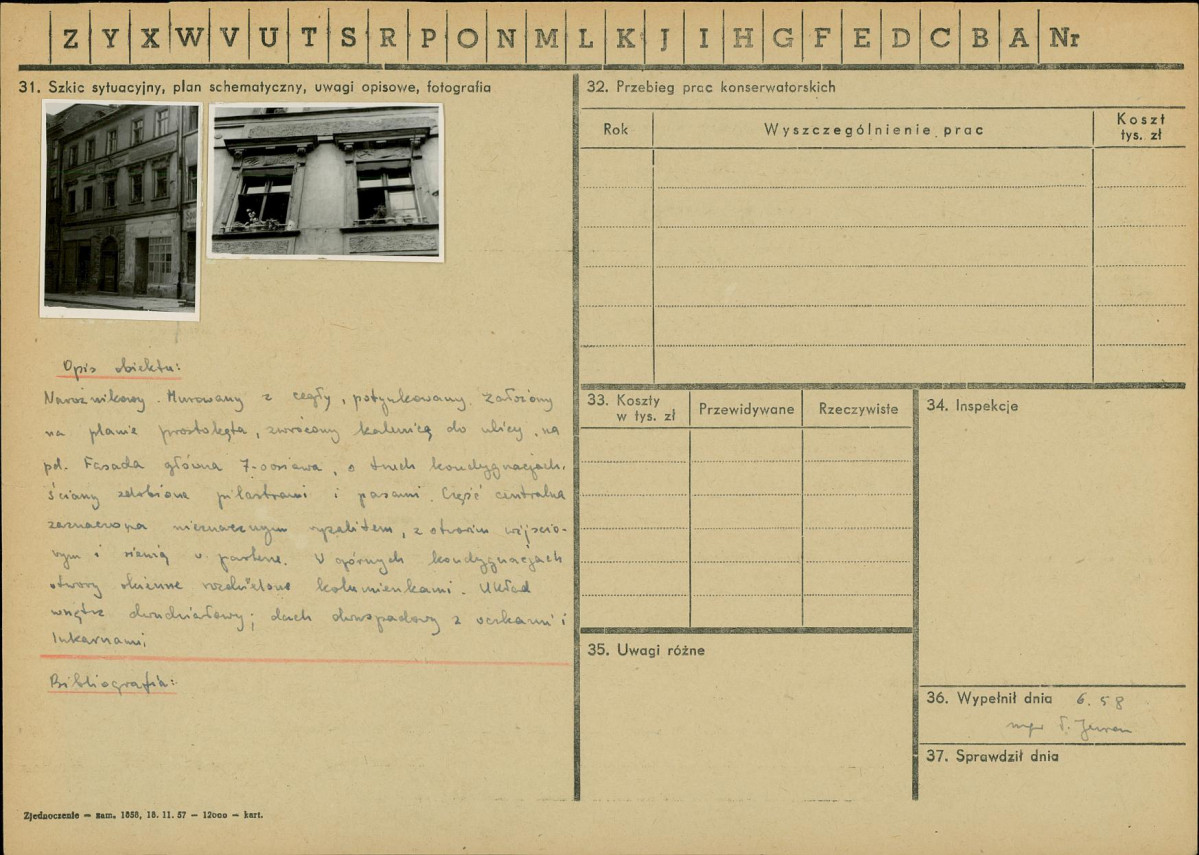 Z Y X W V U T S R P O N M L K J I H G F E D C B A Nr
31. Szkic sytuacyjny, plan schematyczny, uwagi opisowe, fotografia
Opis obiektu:
Narożnikowy. Murowany z cegły, potynkowany. Założony
na planie prostokąta, zwrócony kalenicą do ulicy, na
pd. Fasada główna 7-osiowa, o trzech kondygnacjach.
Ściany zdobione pilastrami i pasami. Część centralna
zaznaczona nieznacznym ryzalitem, z otworem wejścio-
wym i sienią w parterze. W górnych kondygnacjach
otwory okienne rozdzielone kolumienkami. Układ
wnętrz dwudziałowy; dach dwuspadowy z
lukarnami
Bibliografia:
Zjednoczenie — zam. 1858, 18. 11. 57 — 12000 — kart.
32. Przebieg prac konserwatorskich
Rok
Wyszczególnienie prac
Koszt
tys. zł
33. Koszty
w tys. zł
Przewidywane
Rzeczywiste
34. Inspekcje
35. Uwagi różne
36. Wypełnił dnia 6.58
mgr
37. Sprawdził dnia